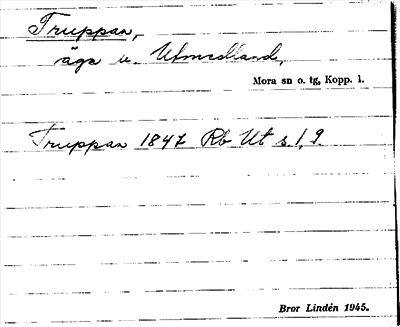 Truppan,
äga u. Utmedland,
Mora sn o. tg, Kopp. l.
Truppan 1847 Rb Ut s. 1, 9.
Bror Lindén 1945.